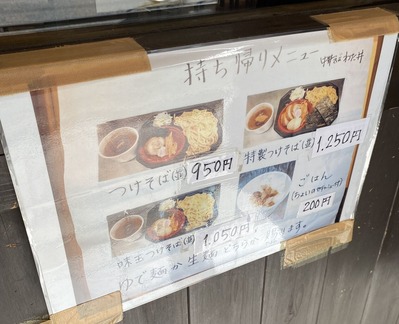 持ち帰りメニュー
中華そば わた井
つけそば(並) 950円
特製つけそば(並) 1,250円
味玉つけそば(並) 1,050円
ごはん
200円
ゆで麺か生麺